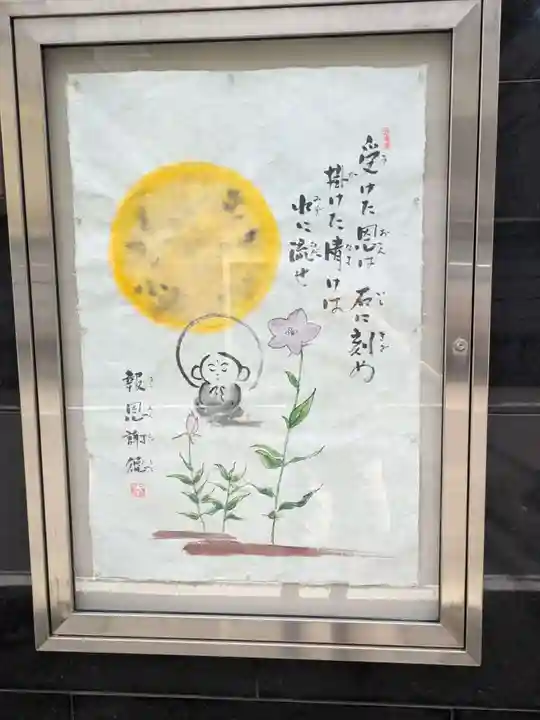 受けた恩は 石に刻め
掛けた情けは
水に流せ
報恩謝徳